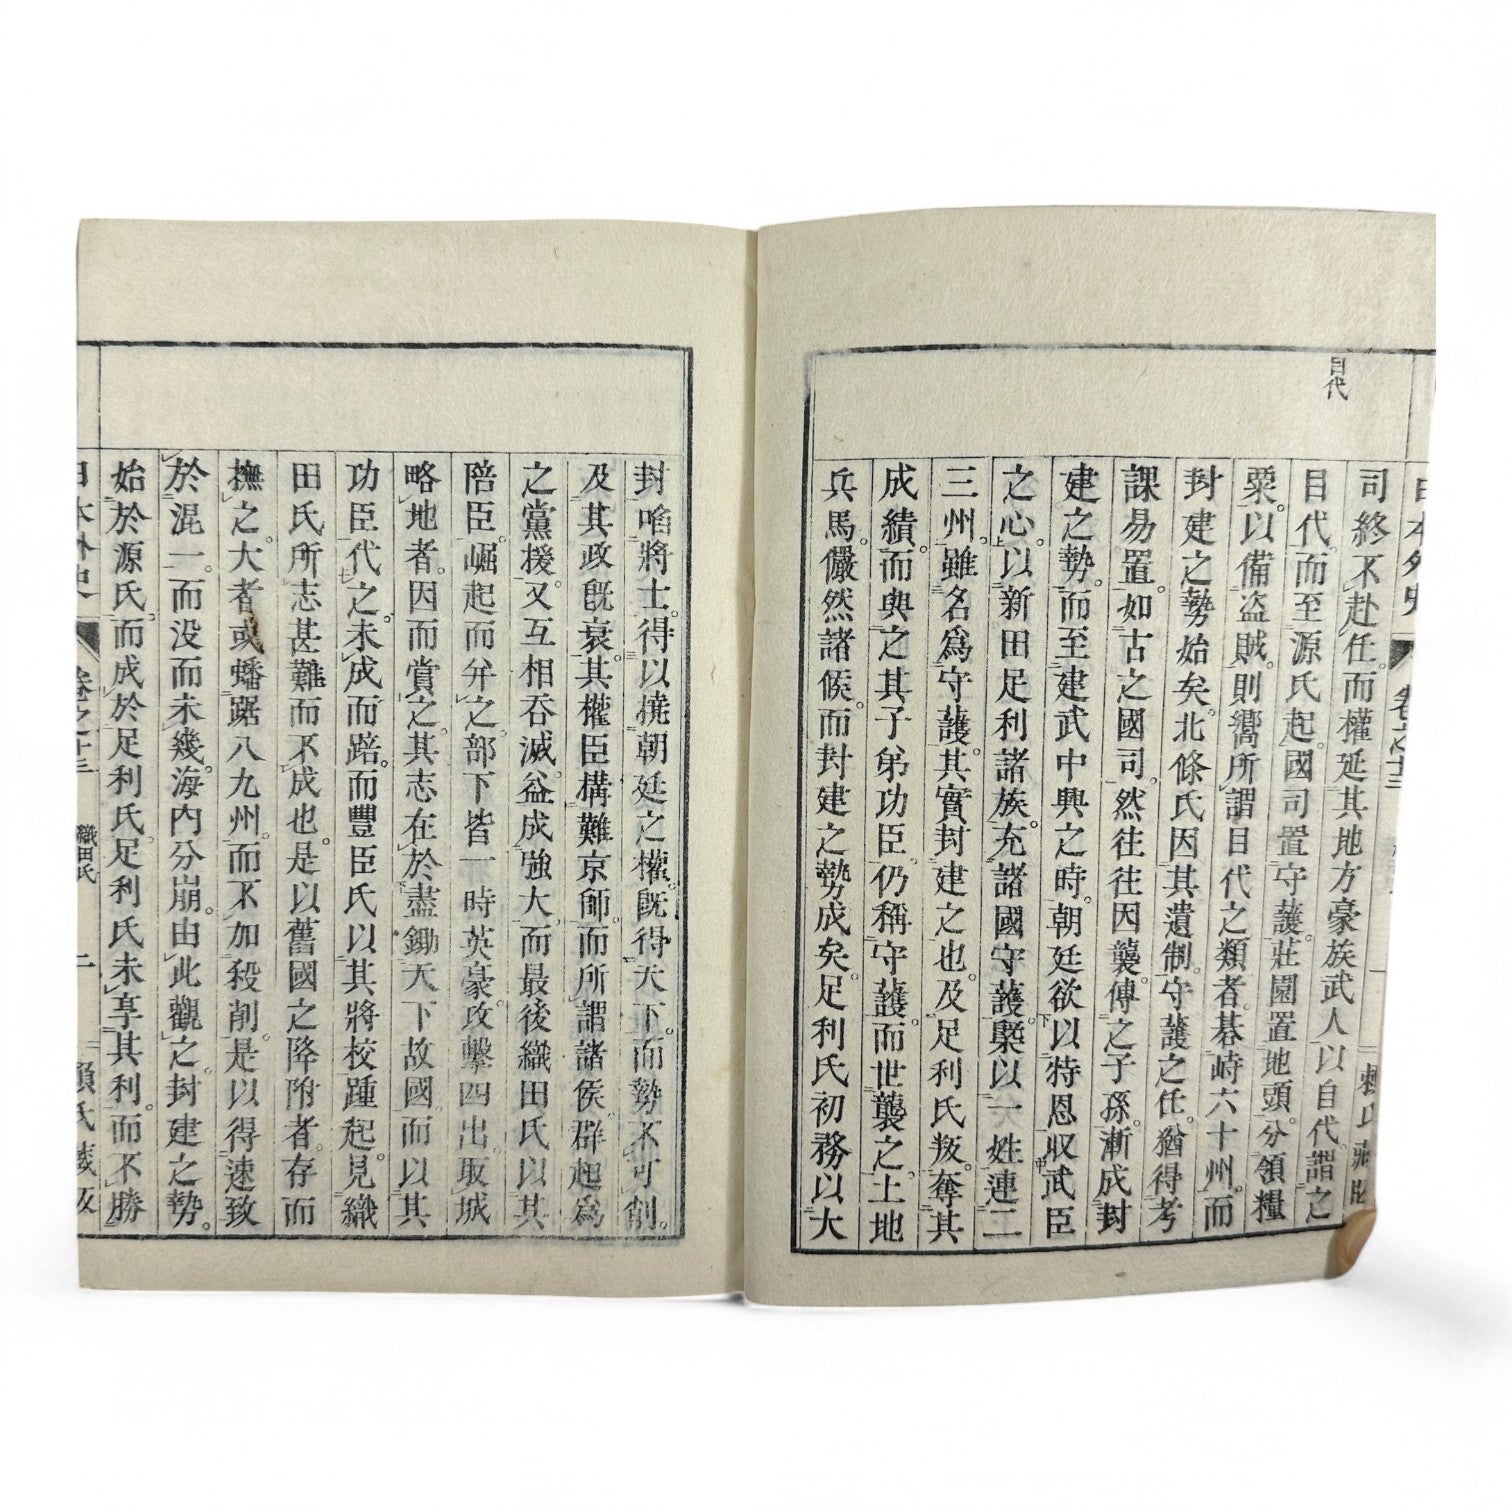 目代
司終不赴任。而權延其地方豪族武人以自代。謂之
目代。而至源氏起。國司置守護。莊園置地頭。分領糧
粟。以備盜賊。則嚮所謂目代之類者。棊峙六十州。而
封建之勢始矣。北條氏因其遺制。守護之任。猶得考
課易置。如古之國司。然往往因襲。傳之子孫。漸成封
建之勢。而至建武中興之時。朝廷欲以特恩收武臣
之心。以新田足利諸族。充諸國守護。槩以一姓連二
三州。雖名爲守護。其實封建之也。及足利氏叛。奪其
成績。而與之其子弟功臣。仍稱守護。而世襲之。土地
兵馬。儼然諸侯。而封建之勢成矣。足利氏初務以大
日本外史
卷之十三
賴氏藏版
封啗將士。得以撓朝廷之權。既得天下。而勢不可削。
及其政既衰。其權臣構難京師。而所謂諸侯。群起爲
之黨援。又互相吞滅。益成強大。而最後織田氏以其
陪臣。崛起而弁之。部下皆一時英豪。攻擊四出。取城
略地者。因而賞之。其志在於盡鋤天下故國。而以其
功臣代之。未成而踣。而豐臣氏以其將校踵起。見織
田氏所志甚難而不成也。是以舊國之降附者。存而
撫之。大者或蟠踞八九州。而不加殺削。是以得速致
於混一。而没而未幾。海内分崩。由此觀之。封建之勢。
始於源氏。而成於足利氏。足利氏未享其利。而不勝
日本外史
卷之十三
織田氏
二
賴氏藏版